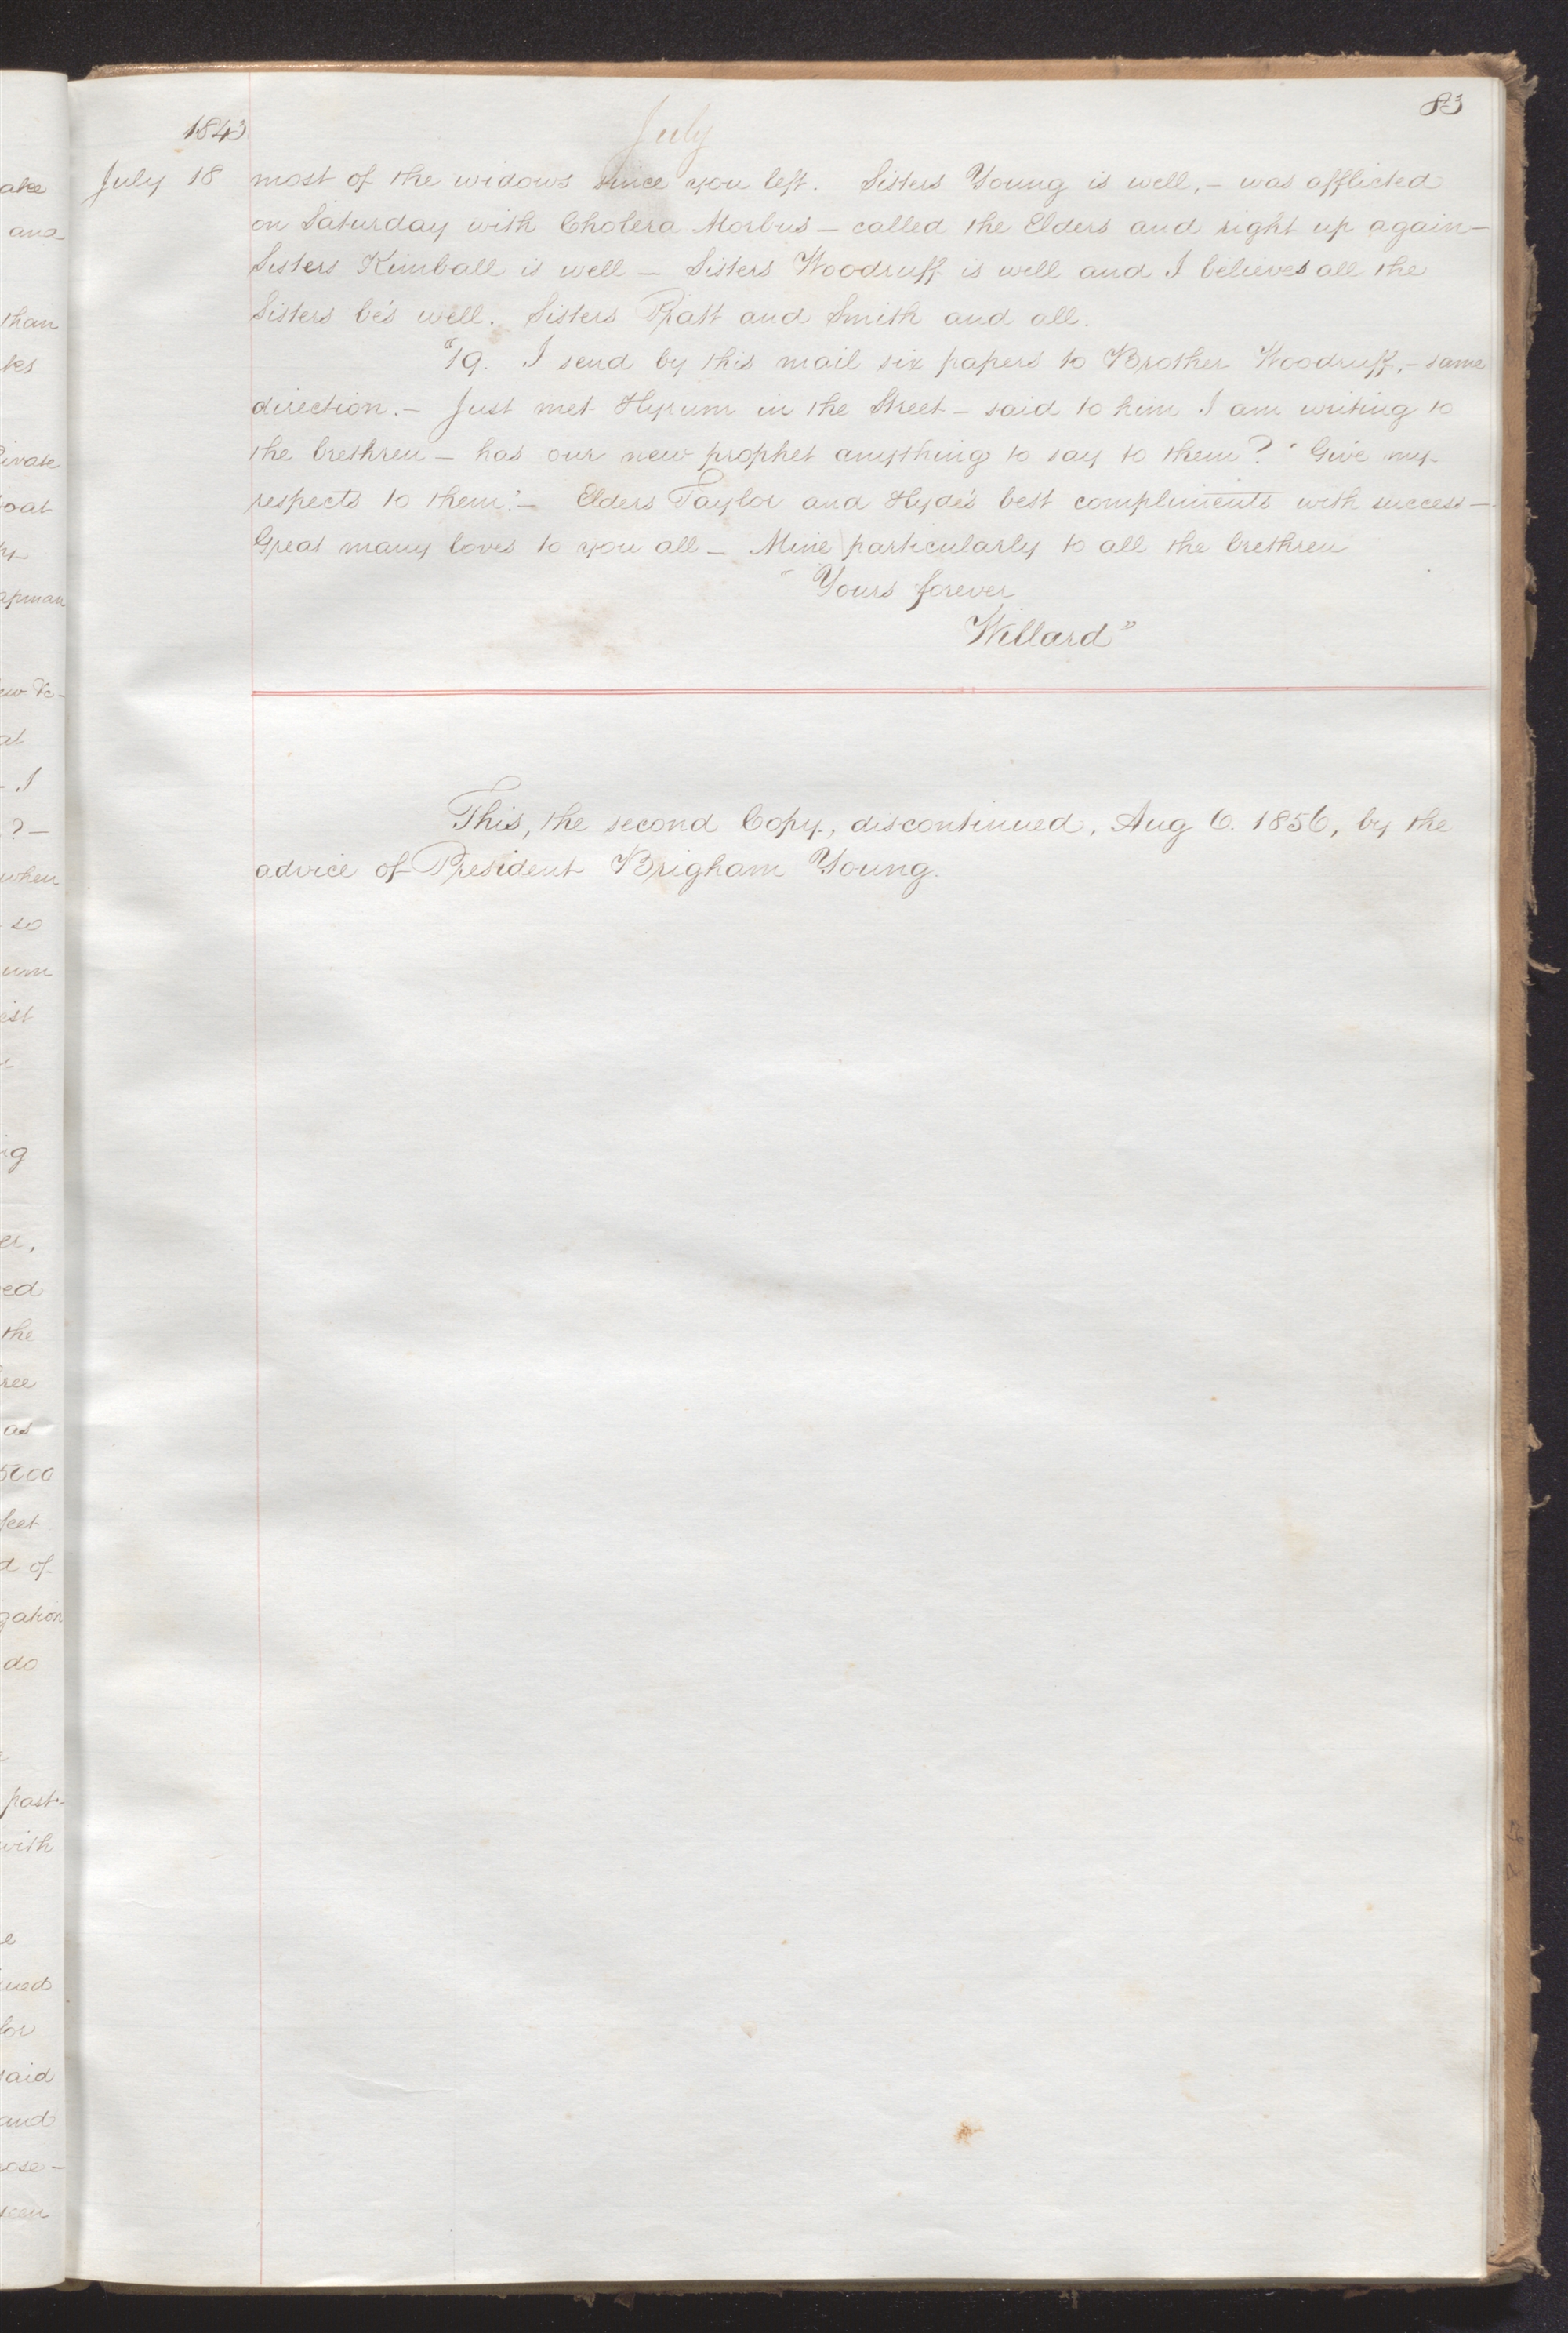 83
1843
July
July 18 most of the widows since you left. Sisters Young is well, – was afflicted
on Saturday with Cholera Morbus – called the Elders and right up again –
Sisters Kimball is well – Sisters Woodruff is well and I believes all the
Sisters be's well. Sisters Pratt and Smith and all.
"19. I send by this mail six papers to Brother Woodruff, – same
direction. – Just met Hyrum in the Street – said to him I am writing to
the brethren – has our new prophet anything to say to them? "Give my
respects to them": – Elders Taylor and Hyde's best compliments with success –
Great many loves to you all – Mine particularly to all the brethren
"Yours forever
Willard"
This, the second Copy, discontinued, Aug 6. 1856, by the
advice of President Brigham Young.
ake
and
than
ivate
oat
apman
at
- I
? –
when
- so
um
est
er,
ed
the
ree
as
5000
feet
d of
zation
do
past-
with
e
ued
for
said
and
ose –
seen